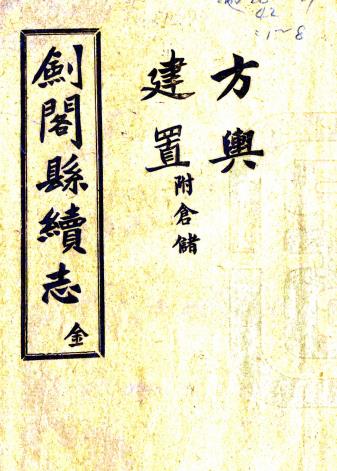 方輿
建置附倉儲
劍閣縣續志 金
42
1~8